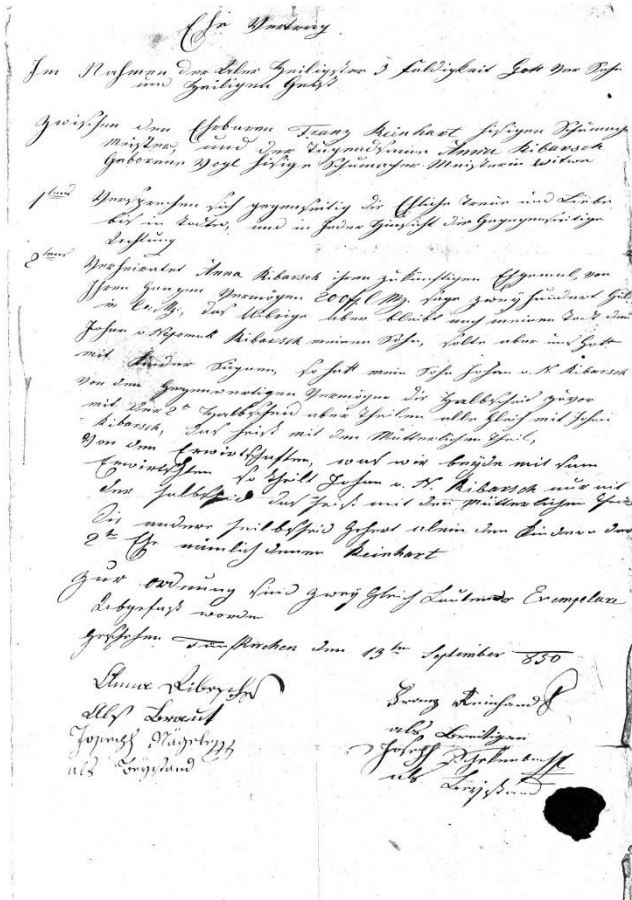 Ehe Vertrag
Im Nahmen der Aller Heiligster 3 faldigkeit Gott Ver Sohn
und Heiligen Geist
Zwischen den Ehrbaren Franz Reinhart hisigen Schumach
meister, und der Tugendsame Anna Ribarsch
Geborene Vogl hisige Schumacher Meisterin Witwe
1tens Versprechen sich gegenseitig die Ehliche Treue und Liebe
bis in Tode, und in jeder Hinsicht die Gegenseitige
Achtung
2tens Verheiratet Anna Ribarsch ihren zukünftigen Ehgemal, von
Ihren ganzen Vermögen 200 fl sage zweyhundert
in das Uebrige aber bleibt nach meinen Tode dem
Johan v Nepomuk Ribarsch meinem Sohn, solte aber uns Gott
mit Kinder Segnen, so hatt mein Sohn Johan v. N Ribarsch
von dem Gegenwertigen Vermögen die Halbscheid zuvor
mit der 2ten Halbscheid aber Theilen alle Gleich mit Johan
Ribarsch, das heist mit dem Mütterlichen Theil,
Von den Erwirtschaften, was wir beyde mit sam
Erwirtschten so Theilt Johan v. N Ribarsch nur mit
der halbscheid das heist mit den Mütterlichen Theil
Die andere Halbscheid Gehert alein den Kindern der
2ten Ehe nämlich denen Reinhart
Zur ordnung sind zwey Gleich Lautende Exemplare
Abgefast worden
Geschehen den 13ten September 850
Anna Ribarsch
Als Braut
Joseph
als Beystand
Franz Reinhard
als Breitigam
Joseph
als Beystand